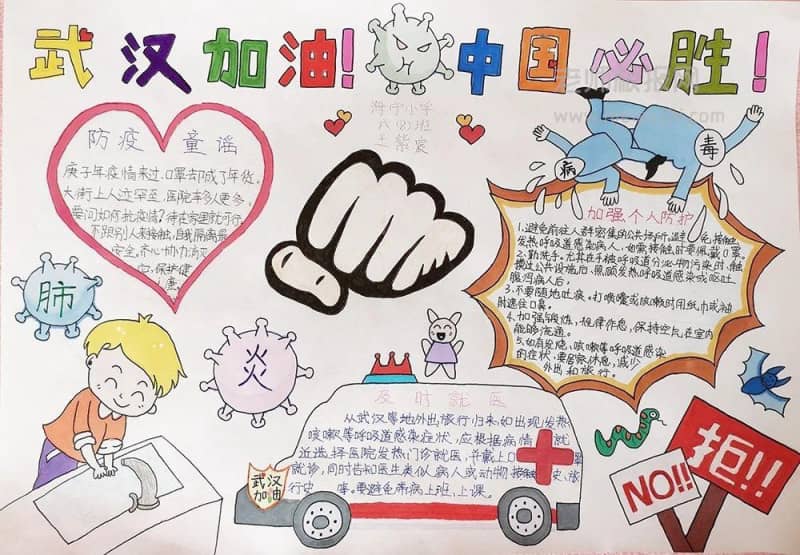 武汉加油! 中国必胜!
海宁小学
六(2)班
王紫宸
防疫 童谣
庚子年疫情来过,口罩却成了年货。
大街上人迹罕至,医院车多人更多,
要问如何抗疫情?待在家里就可行。
不跟别人来接触,自我隔离最
安全。齐心协力消灭
它,保护健
康
病
毒
加强个人防护
1.避免前往人群密集的公共场所。避免接触
发热呼吸道感染病人,如需接触时要佩戴口罩。
2.勤洗手。尤其在手被呼吸道分泌物污染时、触
摸过公共设施后、照顾发热呼吸道感染或呕吐
腹泻病人后,
3.不要随地吐痰。打喷嚏或咳嗽时用纸巾或袖
肘遮住口鼻。
4.加强锻炼,规律作息,保持空气在室内
能够流通。
5.如有发烧、咳嗽等呼吸道感染
的症状,要居家休息,减少
外出和旅行。
肺
炎
及时就医
从武汉等地外出旅行归来,如出现发热
咳嗽等呼吸道感染症状,应根据病情就
近选择医院发热门诊就医,并戴上口罩
就诊,同时告知医生类似病人或动物接触史、旅
行史等。要避免带病上班、上课。
武汉
加油
NO!!
拒!!